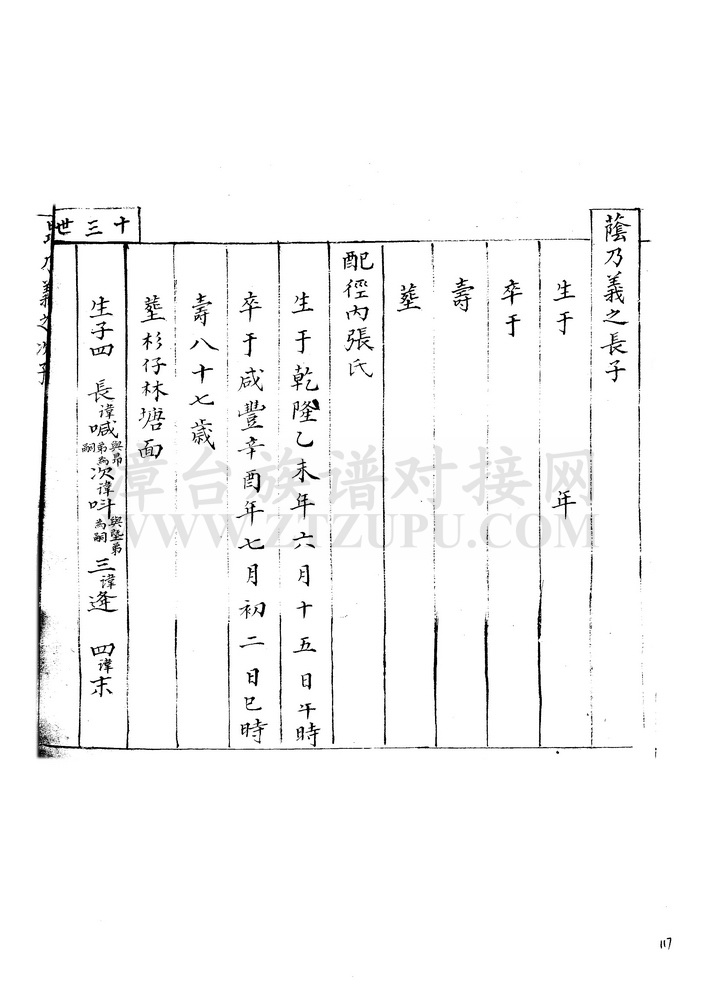 蔭乃義之長子
生于 年
卒于
壽
塟
配徑內張氏
生于乾隆乙未年六月十五日午時
卒于咸豐辛酉年七月初二日巳時
壽八十七歲
塟杉仔林塘面
生子四 長諱喊與昂弟為嗣次諱呌與堅弟為嗣三諱逢 四諱末
十三世
乃義之次子
潭台族谱对接网
WWW.ZTZUPU.COM
117